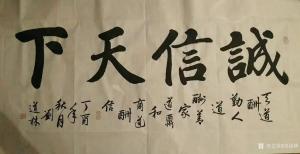 誠信天下
天道
酬勤人
道
酬善
家
道酬
和
商道
酬
信
丁酉
年
秋月
劉
道林